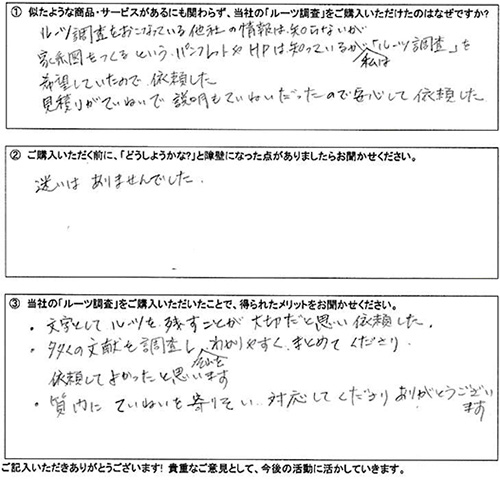 ① 似たような商品・サービスがあるにも関わらず、当社の「ルーツ調査」をご購入いただけたのはなぜですか?
ルーツ調査をおこなっている他社の情報は知らないが
家系図をつくるという パンフレットやHPは知っているが、私は「ルーツ調査」を
希望していたので 依頼した
見積りがていねいで 説明もていねいだったので安心して依頼した
② ご購入いただく前に、「どうしようかな?」と障壁になった点がありましたらお聞かせください。
迷いは ありませんでした.
③ 当社の「ルーツ調査」をご購入いただいたことで、得られたメリットをお聞かせください。
・文字として ルーツを 残すことが 大切だと思い 依頼した.
・多くの文献を調査し、わかりやすく まとめてくださり
依頼してよかったと思います
・質問に ていねいな 寄りそい 対応してくださり ありがとうござい
ます
ご記入いただきありがとうございます! 貴重なご意見として、今後の活動に活かしていきます。